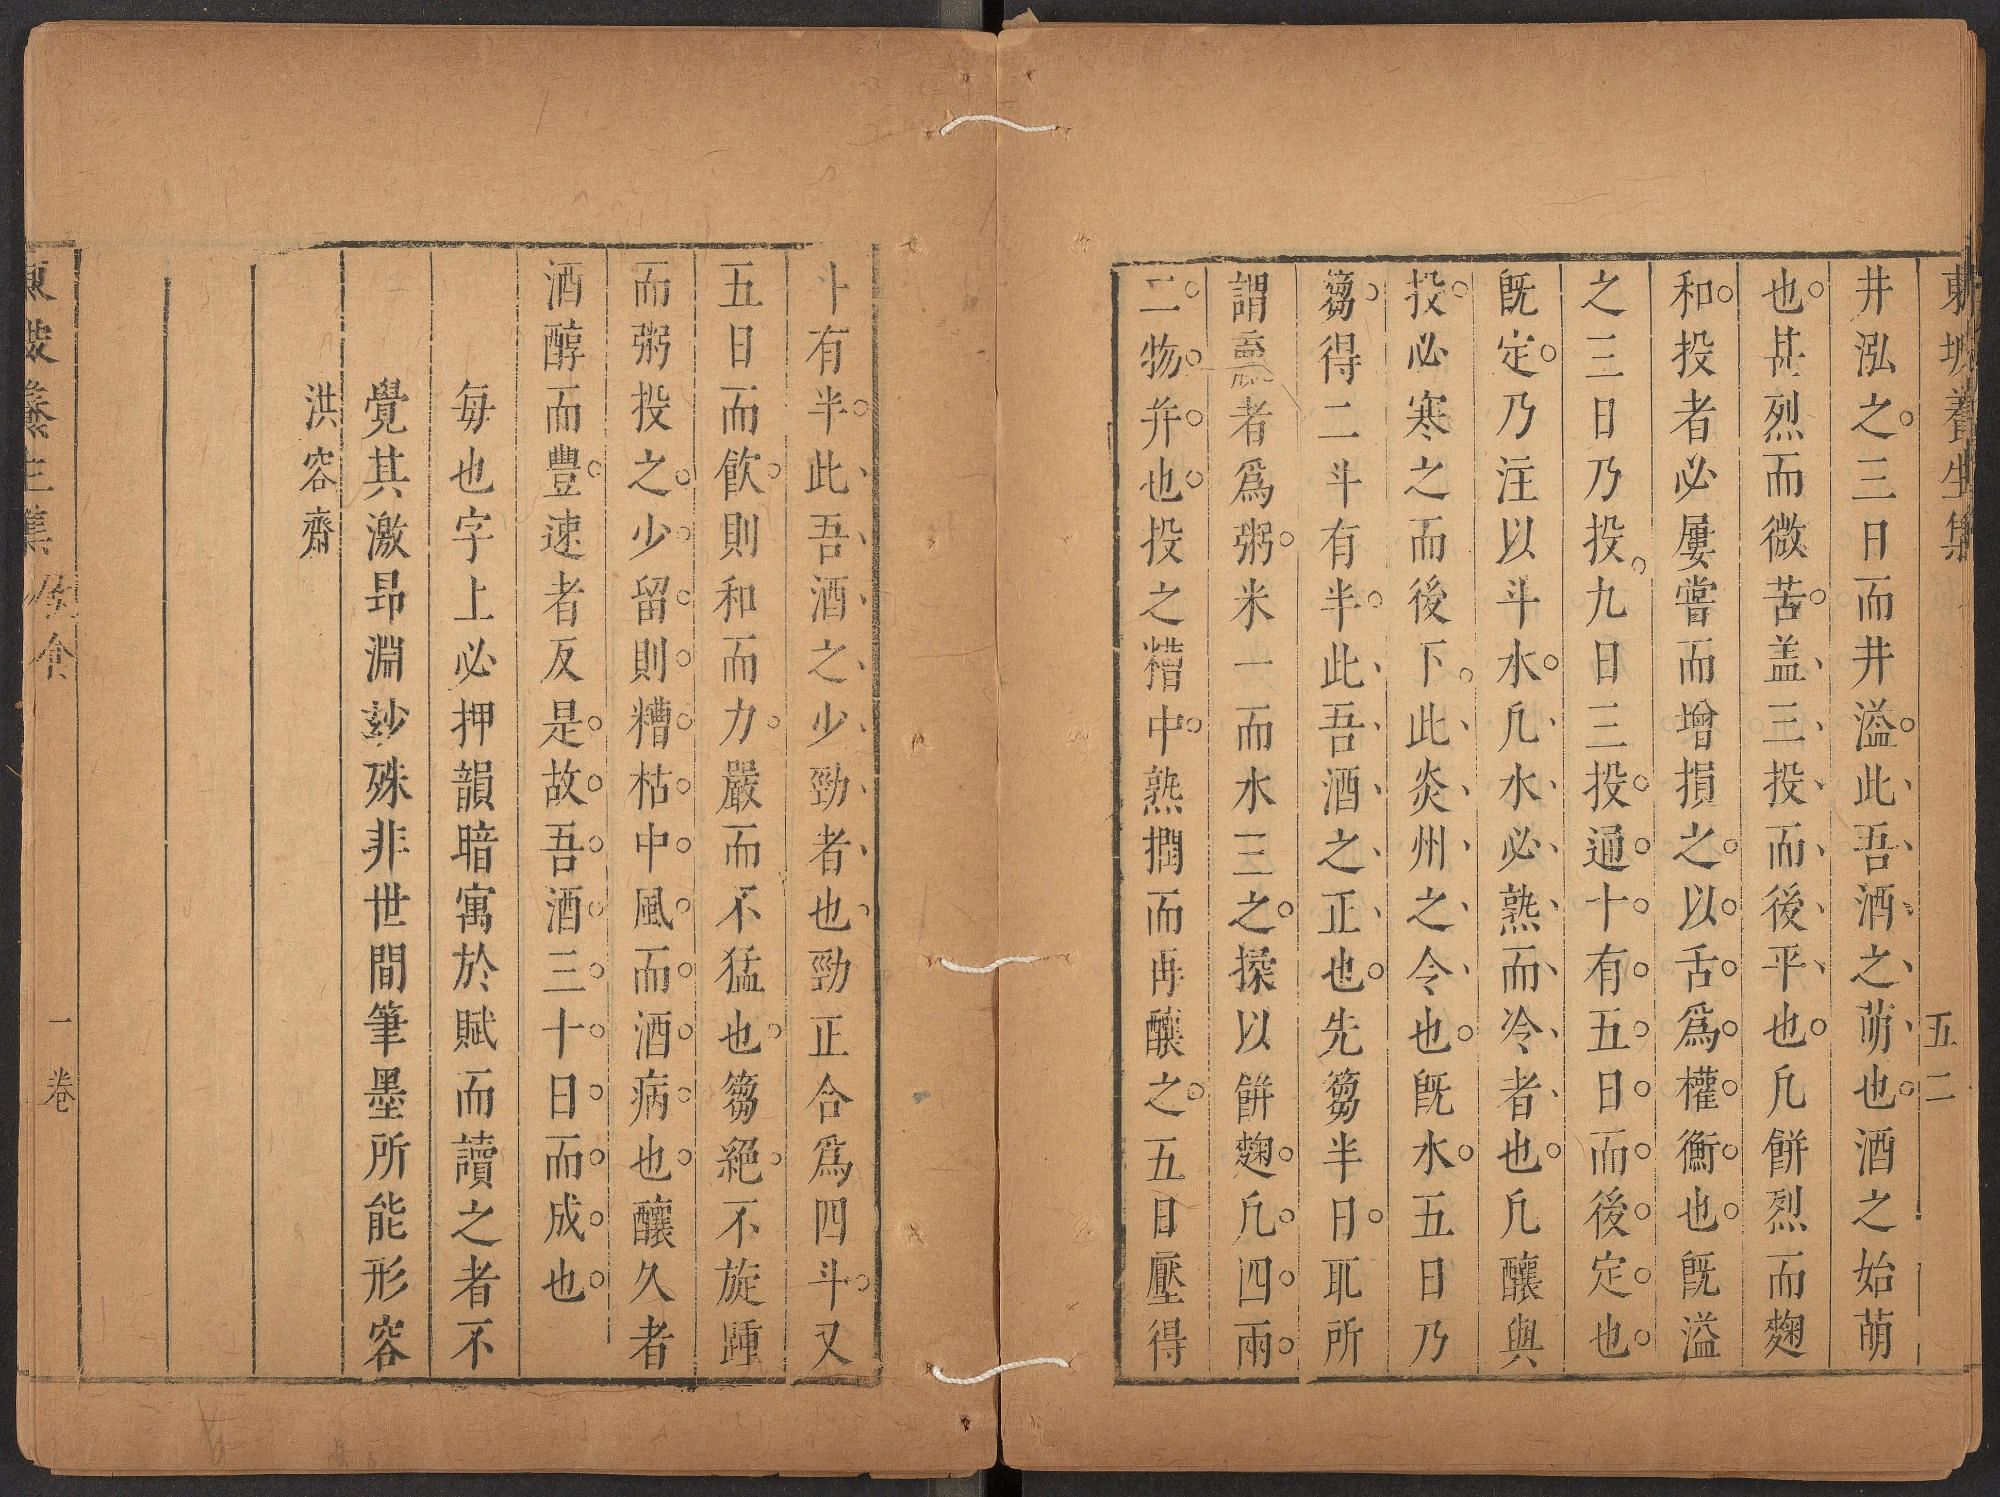 東坡養生集
五二
井泓之三日而井溢此吾酒之萌也酒之始萌
也甚烈而微苦盖三投而後平也凡餅烈而麴
和投者必屢嘗而增損之以舌爲權衡也旣溢
之三日乃投九日三投通十有五日而後定也
旣定乃注以斗水凡水必熟而冷者也凡釀與
投必寒之而後下此炎州之令也旣水五日乃
篘得二斗有半此吾酒之正也先篘半日取所
謂者爲粥米一而水三之揉以餅麴凡四兩
二物并也投之糟中熟撋而再釀之五日壓得
斗有半此吾酒之少勁者也勁正合爲四斗又
五日而飲則和而力嚴而不猛也篘絕不旋踵
而粥投之少留則糟枯中風而酒病也釀久者
酒醇而豐速者反是故吾酒三十日而成也
每也字上必押韻暗寓於賦而讀之者不
覺其激昂淵妙殊非世間筆墨所能形容
洪容齋
東坡養生集
飲食
一卷